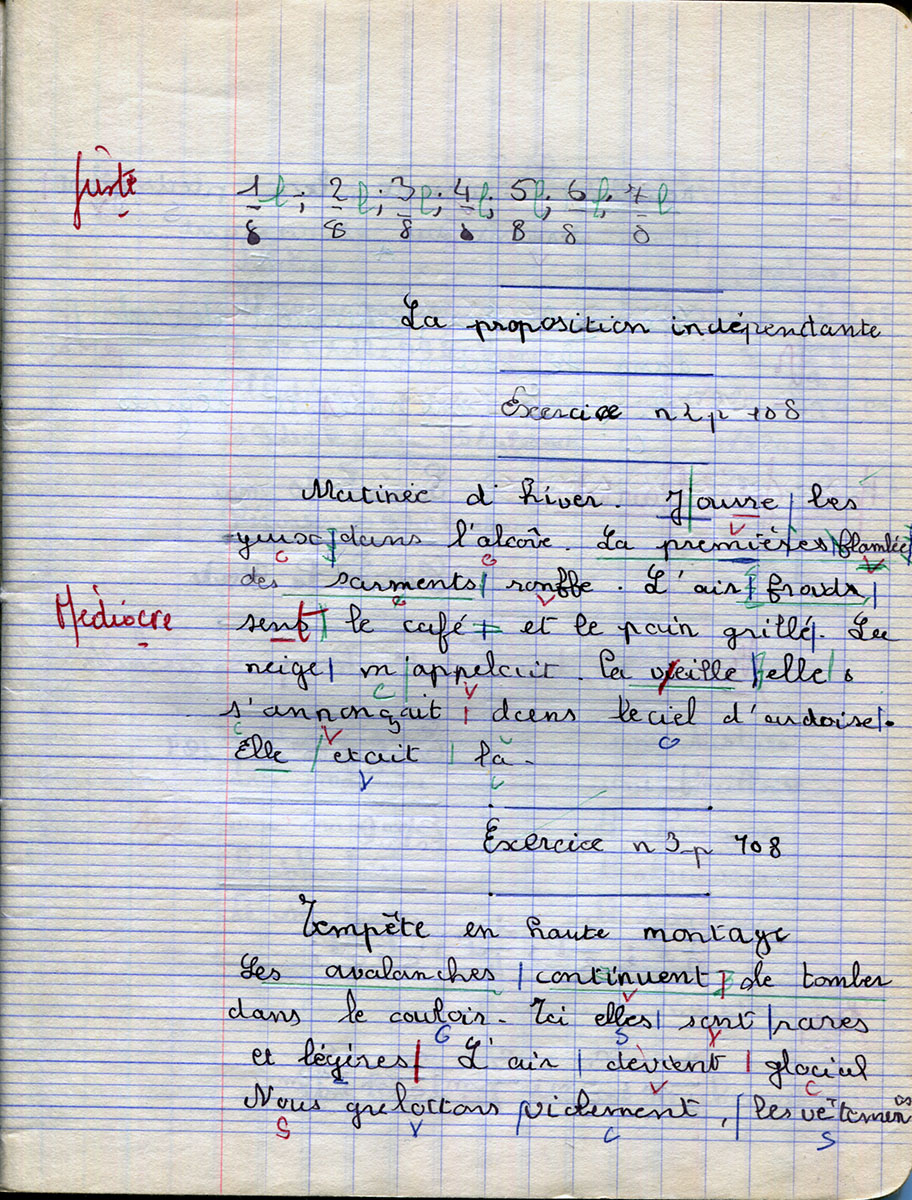 Juste
1/8 l ; 2/8 l ; 3/8 l ; 4/8 l ; 5/8 l ; 6/8 l ; 7/8 l
La proposition indépendante
Exercice n 2 p 108
Matinée d'hiver. J'ouvre les
yeux dans l'alcôve. La premières flamlée
des sarments ronffe. L'air froids
Médiocre
sent le café et le pain grillé. La
neige m'appelait. La vieille elle
s'annonçait dans le ciel d'ardoise.
Elle était là.
V
C
Exercice n 3 p 108
Tempête en haute montage
Les avalanches continuent de tomber
dans le couloir. Ici elles sont rares
et légères L'air devient glacial
Nous grelottons violement, les vêtemen
S V C S